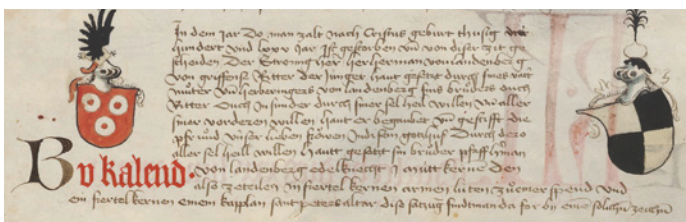 In dem jar do man zalt nach Cristus geburt thusig
hundert vnd lxxx jar Ist gestorben vnd von diser zit ge
scheiden Der Streng her herman von landenberg
von griffense Ritter der Junger haut gesetzt durch sines vatt
muter vnd herberingers von landenberg sins bruders ouch
Ritter Ouch in sunder durch siner sel heil willen vnd aller
siner vorderen willen haut er begaubet vnd gestifft die
pfr vnd vnser lieben frowen in disem gotzhus Durch dero
aller sel heill willen hautt gesetzt sin bruder pfaff herman
von landenberg edelknecht j mutt kerne den
Bv kalend.
also ze teilen iij fiertel kernen armen luten zu einer spend vnd
ein fiertel kernen einem kapplan sant peters altar dis satzung